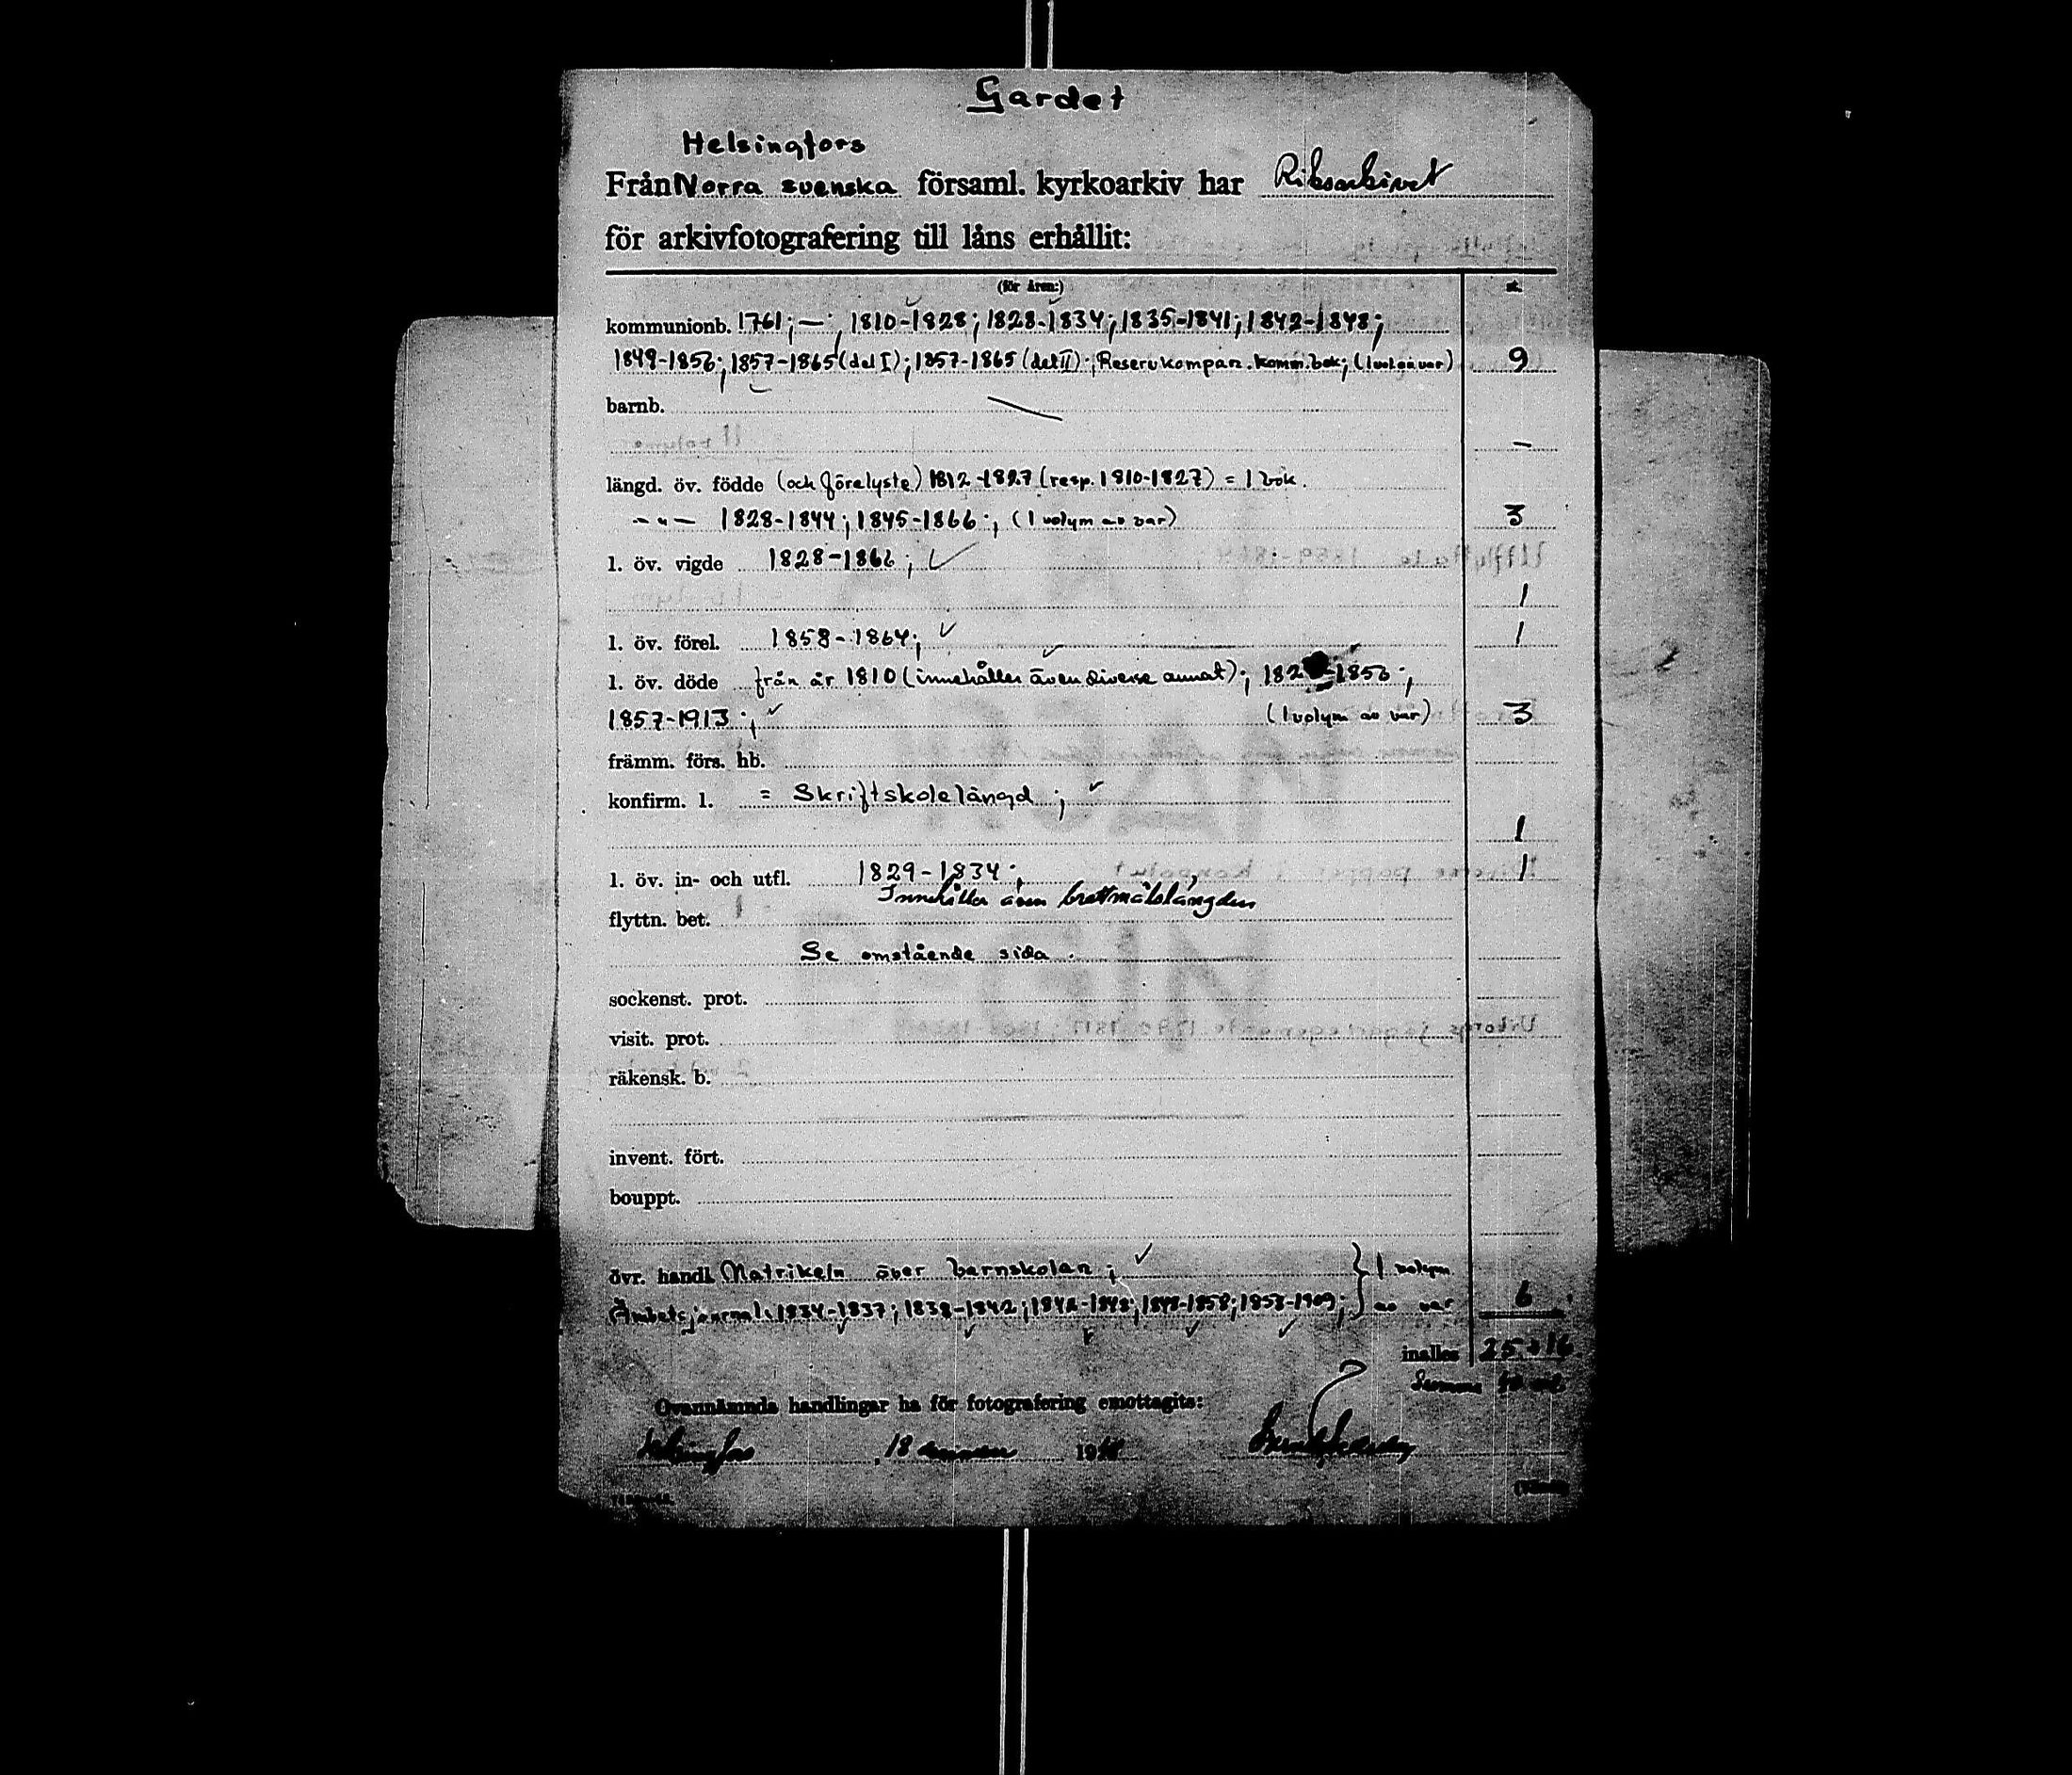 Gardet
Helsingfors
Från Norra svenska församl. kyrkoarkiv har Riksarkivet
för arkivfotografering till låns erhållit:
(för åren:) st.
kommunionb. 1761; —; 1810-1828; 1828-1834; 1835-1841; 1842-1848;
1849-1856; 1857-1865 (del I); 1857-1865 (del II); Reservkompan. komm.bok; (1 vol. av var) 9
barnb.
—
längd. öv. födde (och förelyste) 1812-1827 (resp. 1810-1827) = 1 bok.
-"- 1828-1844; 1845-1866; (1 volym av var) 3
l. öv. vigde 1828-1866;
1
l. öv. förel. 1858-1864; 1
l. öv. döde från år 1810 (innehåller även diverse annat); 182 -1856;
1857-1913; (1 volym av var) 3
främm. förs. hb.
konfirm. l. = Skriftskolelängd;
1
l. öv. in- och utfl. 1829-1834; 1
Innehåller även brottmålslängden
flyttn. bet.
Se omstående sida.
sockenst. prot.
visit. prot.
räkensk. b.
invent. fört.
bouppt.
övr. handl. Matrikeln över barnskolan; } 1 volym
Ämbetsjournal: 1834-1837; 1838-1842; 1842-1848; 1848-1858; 1858-1909; } av var 6
inalles 25 + 16
Summa
Ovannämnda handlingar ha för fotografering emottagits:
Helsingfors, 18 19